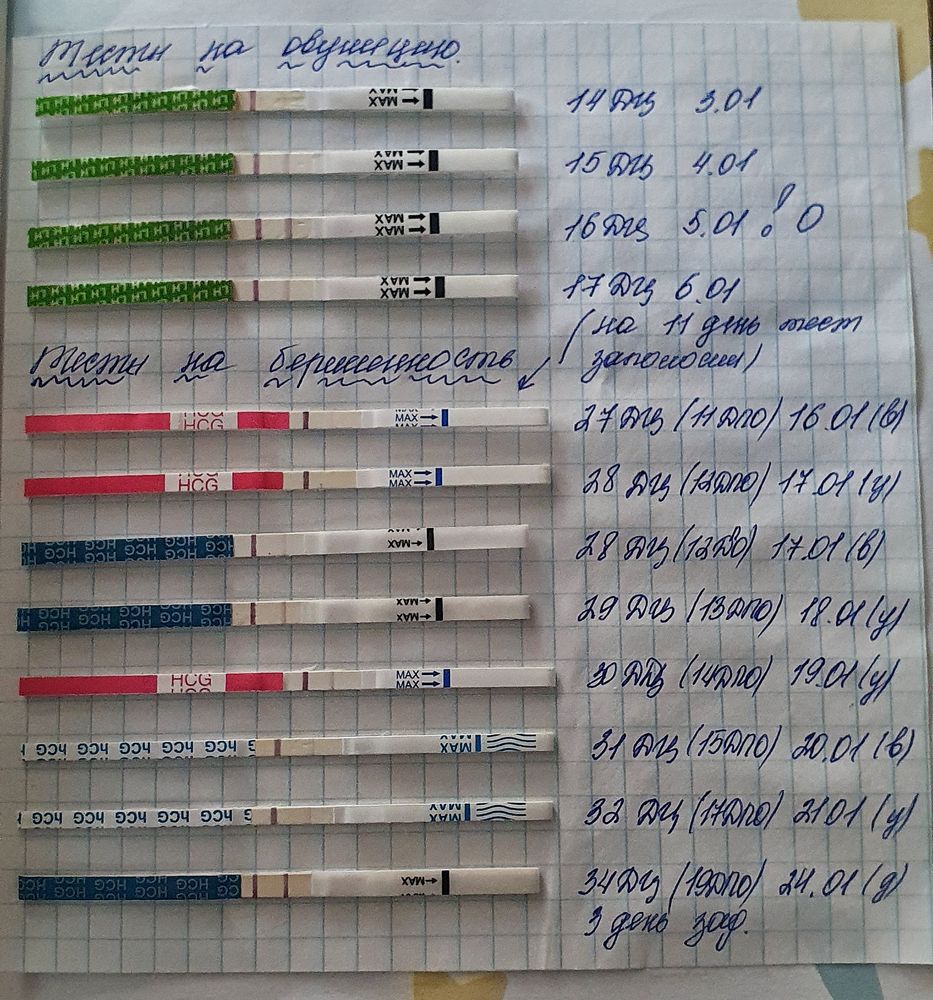 Тесты на овуляцию.
MAX MAX 14 ДЦ 3.01
MAX MAX 15 ДЦ 4.01
MAX MAX 16 ДЦ 5.01 ! О
MAX MAX 17 ДЦ 6.01
(на 11 день тест
Тесты на беременность
заполосил)
HCG HCG MAX MAX 27 ДЦ (11 ДПО) 16.01 (в)
HCG HCG MAX MAX 28 ДЦ (12 ДПО) 17.01 (у)
HCG HCG HCG HCG MAX 28 ДЦ (12 ДПО) 17.01 (в)
HCG HCG HCG HCG MAX MAX 29 ДЦ (13 ДПО) 18.01 (у)
HCG HCG MAX MAX 30 ДЦ (14 ДПО) 19.01 (у)
hCG hCG hCG hCG hCG hCG MAX 31 ДЦ (15 ДПО) 20.01 (в)
hCG hCG hCG hCG hCG hCG MAX 32 ДЦ (17 ДПО) 21.01 (у)
HCG HCG HCG HCG MAX 34 ДЦ (19 ДПО) 24.01 (д)
3 день зад.